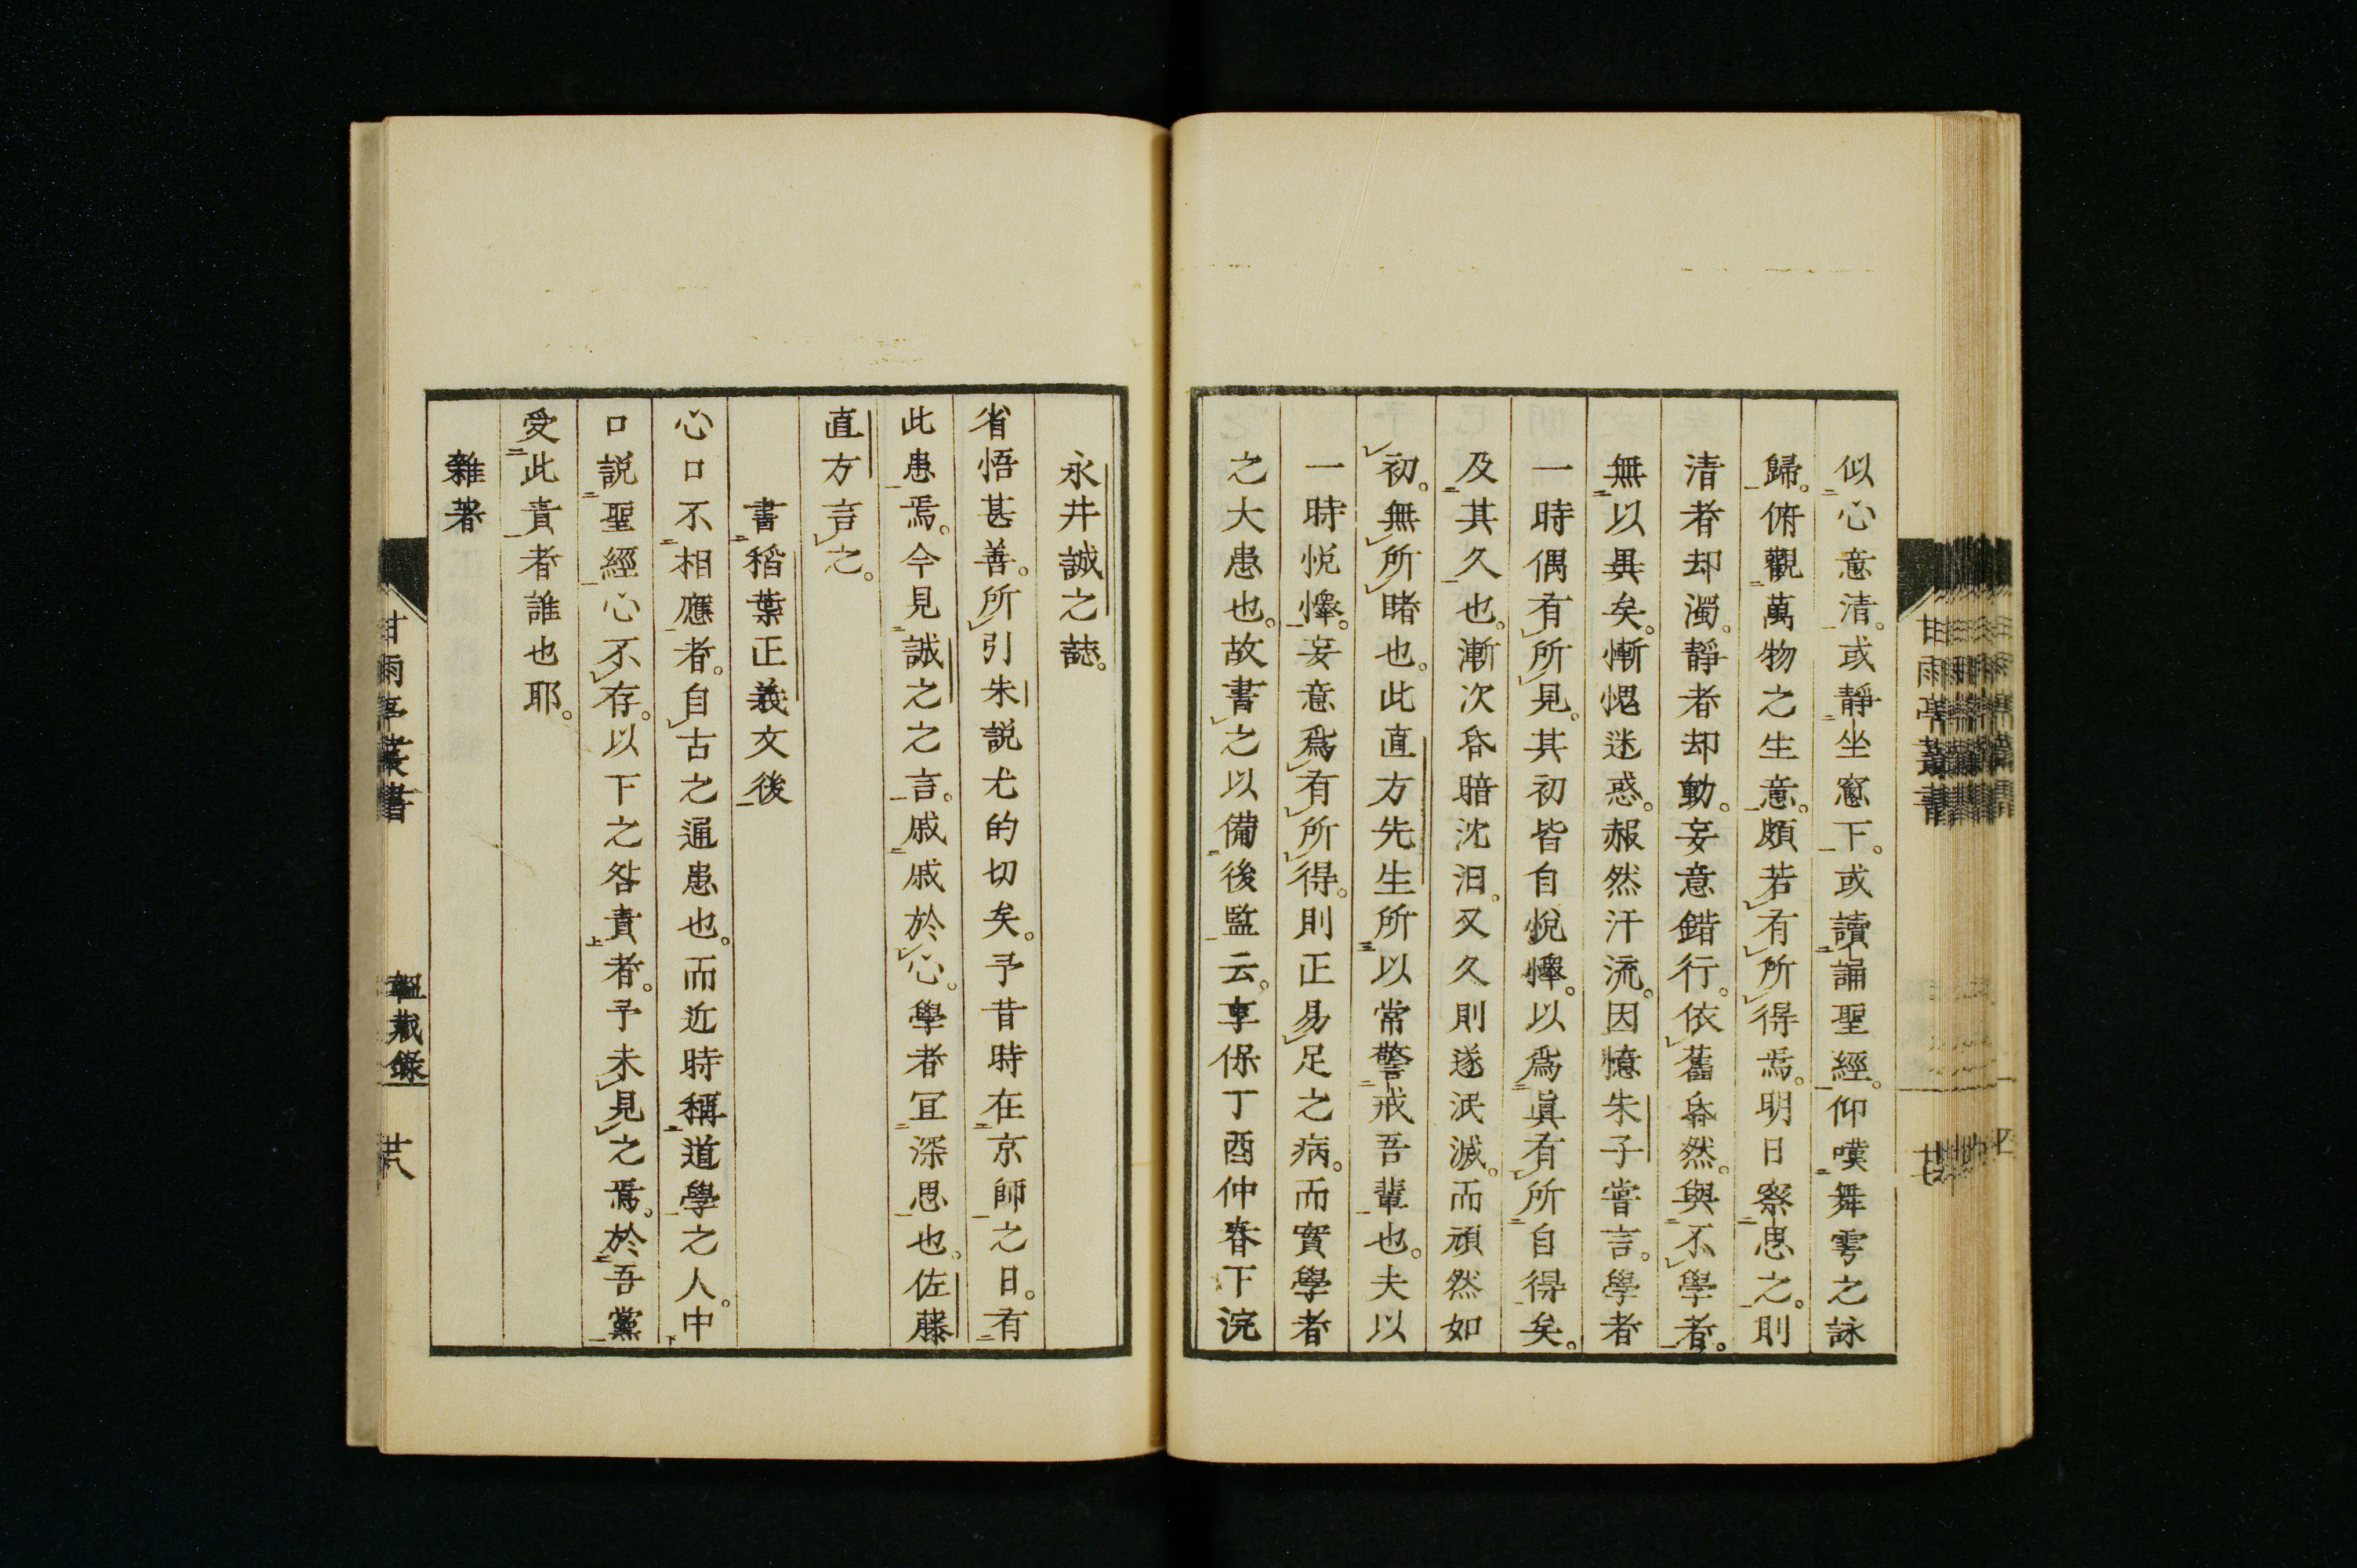 似心意清。或靜坐窓下。或讀誦聖經。仰嘆舞雩之詠
歸。俯觀萬物之生意。頗若有所得焉。明日察思之。則
清者却濁。靜者却動。妄意錯行。依舊昏然。與不學者。
無以異矣。慚愧迷惑。赧然汗流。因憶朱子嘗言。學者
一時偶有所見。其初皆自悅懌。以爲眞有所自得矣。
及其久也。漸次昏暗沈汨。又久則遂泯滅。而頑然如
初。無所睹也。此直方先生所以常警戒吾輩也。夫以
一時悅懌。妄意爲有所得。則正易足之病。而實學者
之大患也。故書之以備後監云。享保丁酉仲春下浣
永井誠之誌。
省悟甚善。所引朱説尤的切矣。予昔時在京師之日。有
此患焉。今見誠之之言。戚戚於心。學者宜深思也。佐藤
直方言之。
書稻葉正義文後
心口不相應者。自古之通患也。而近時稱道學之人。中
口説聖經心不存。以下之咎責者。予未見之焉。於吾黨
受此責者誰也耶。
雜著
甘雨亭叢書
韞藏錄
廿八
甘雨亭叢書
廿七